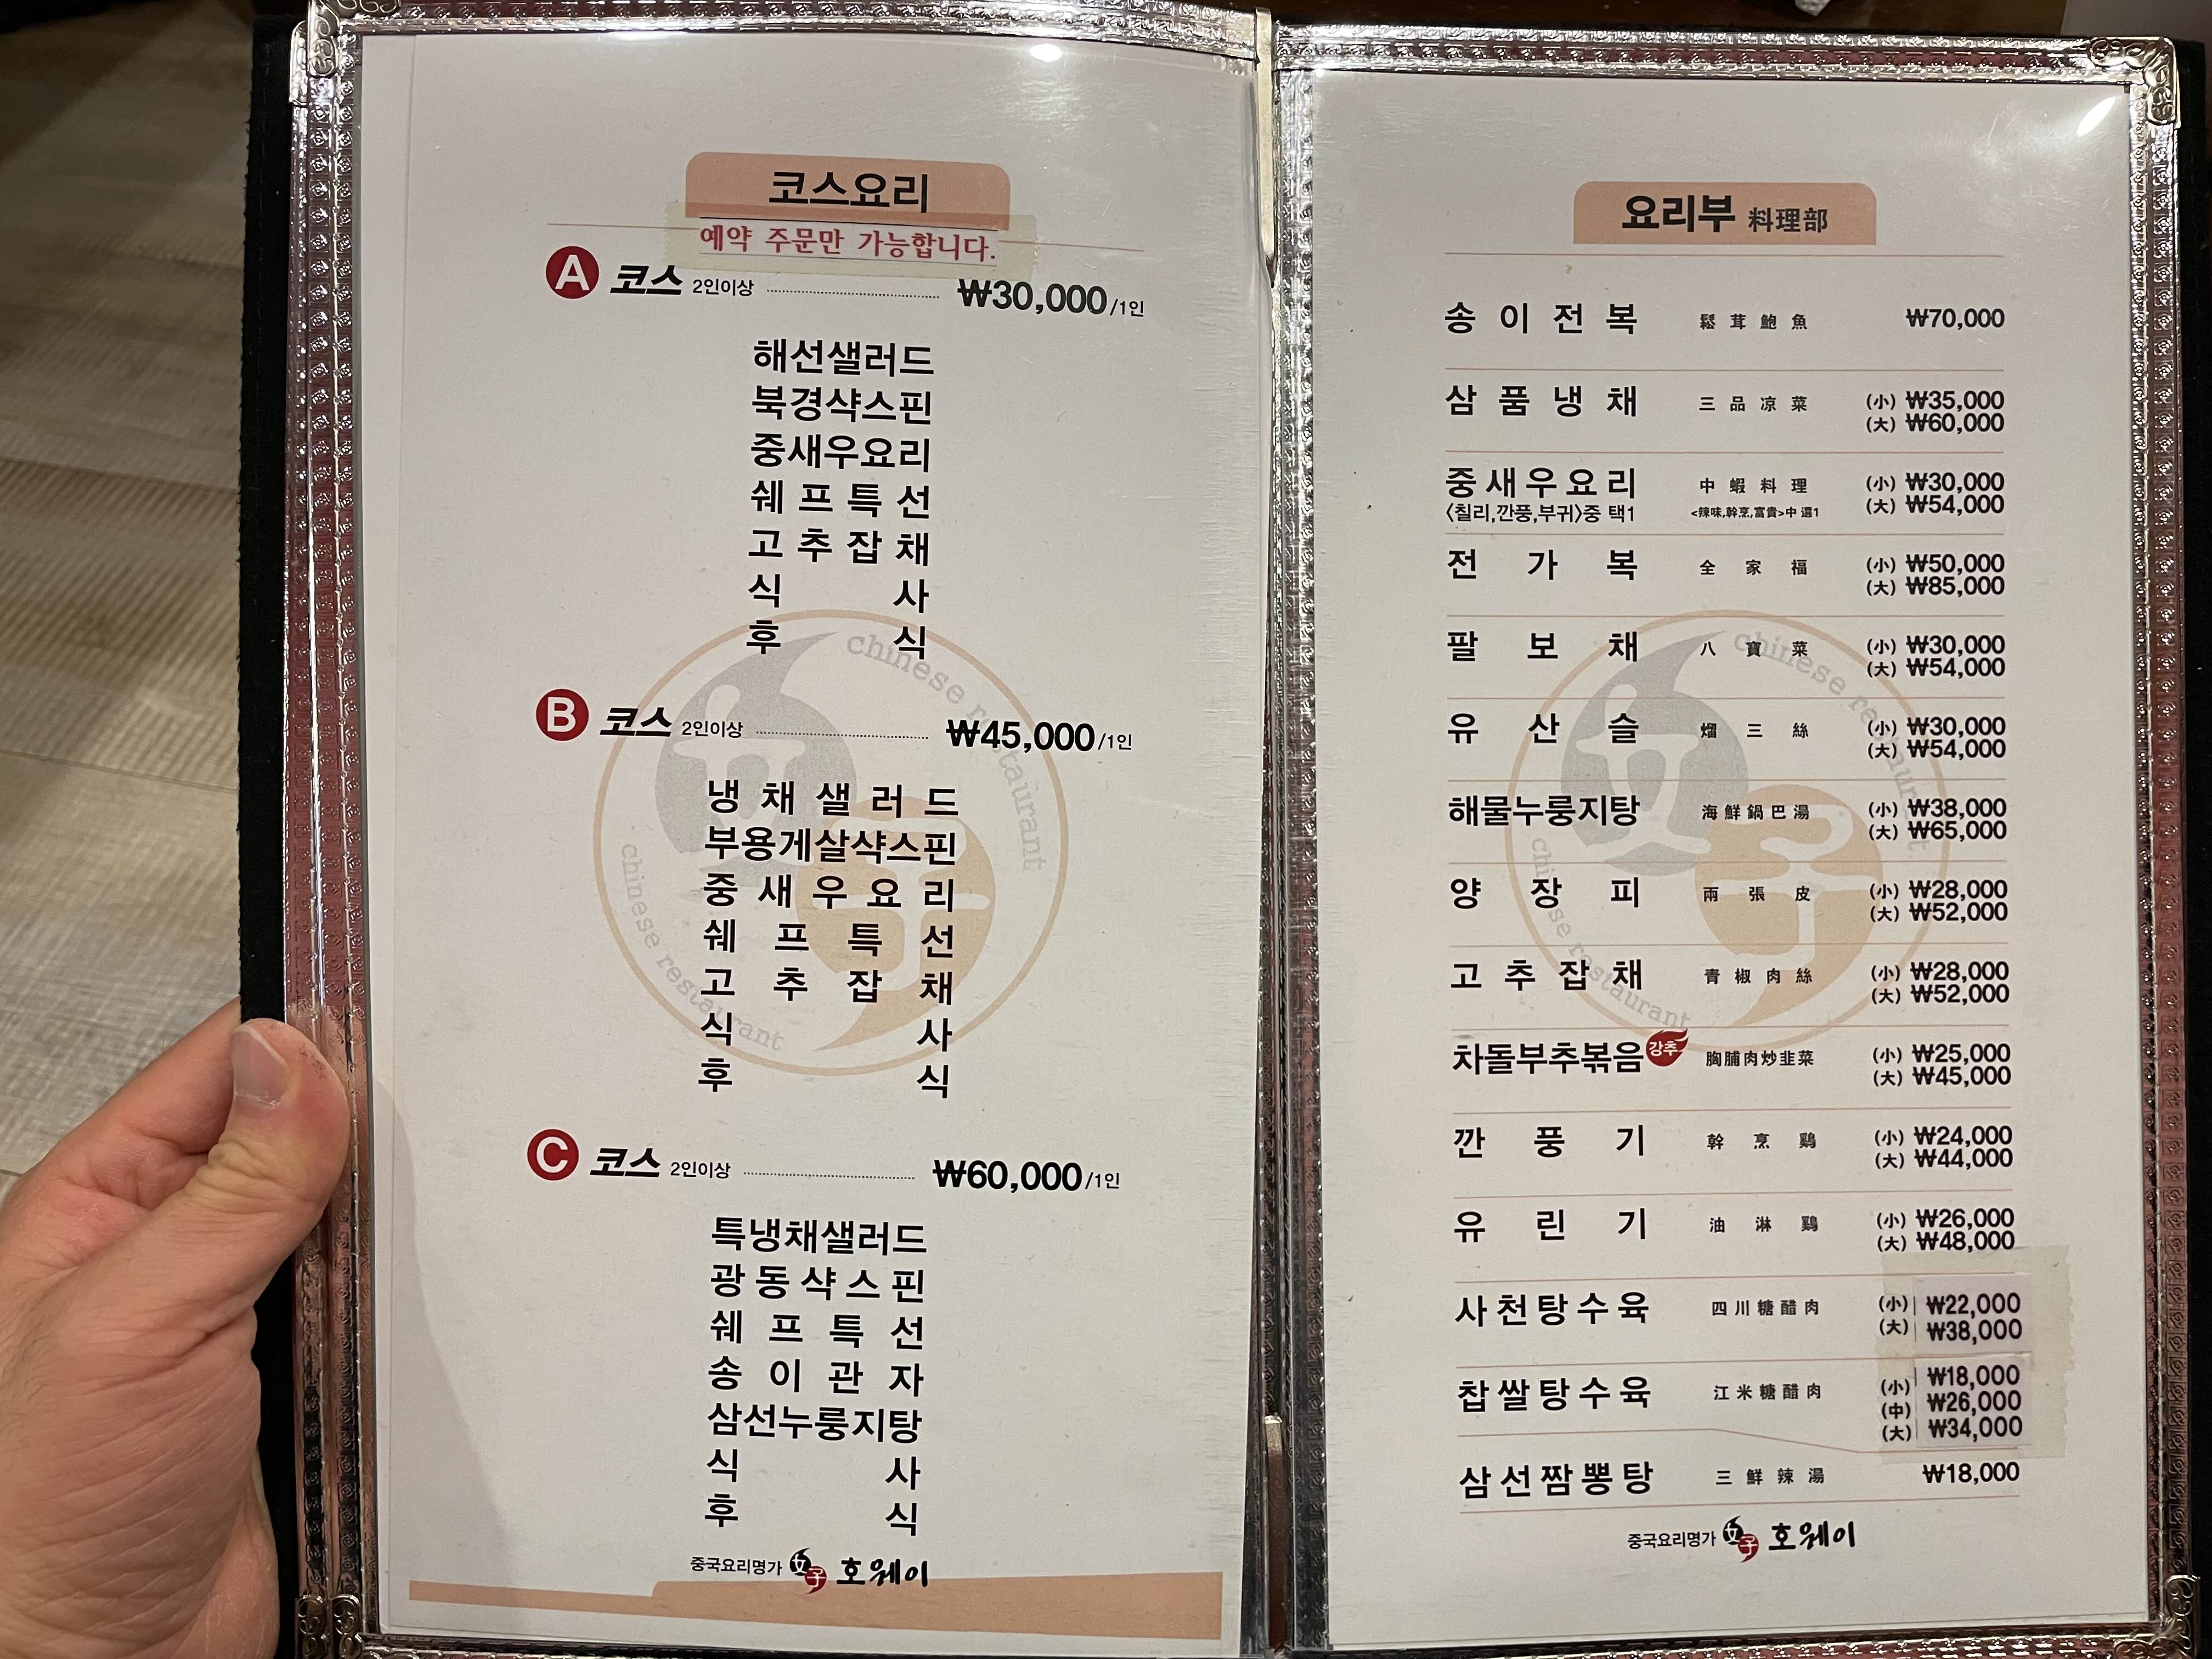 코스요리
예약 주문만 가능합니다.
A 코스 2인이상 ₩30,000/1인
해선샐러드
북경샥스핀
중새우요리
쉐프특선
고추잡채
식사
후식
B 코스 2인이상 ₩45,000/1인
냉채샐러드
부용게살샥스핀
중새우요리
쉐프특선
고추잡채
식사
후식
C 코스 2인이상 ₩60,000/1인
특냉채샐러드
광동샥스핀
쉐프특선
송이관자
삼선누룽지탕
식사
후식
중국요리명가 호웨이
chinese restaurant
chinese restaurant
요리부 料理部
송이전복 鬆茸鮑魚 ₩70,000
삼품냉채 三品凉菜 (小) ₩35,000
(大) ₩60,000
중새우요리 中蝦料理 (小) ₩30,000
<칠리,깐풍,부귀>중 택1 <辣味,幹烹,富貴>中 選1 (大) ₩54,000
전가복 全家福 (小) ₩50,000
(大) ₩85,000
팔보채 八寶菜 (小) ₩30,000
(大) ₩54,000
유산슬 熘三絲 (小) ₩30,000
(大) ₩54,000
해물누룽지탕 海鮮鍋巴湯 (小) ₩38,000
(大) ₩65,000
양장피 兩張皮 (小) ₩28,000
(大) ₩52,000
고추잡채 青椒肉絲 (小) ₩28,000
(大) ₩52,000
차돌부추볶음 강추 胸脯肉炒韭菜 (小) ₩25,000
(大) ₩45,000
깐풍기 幹烹鷄 (小) ₩24,000
(大) ₩44,000
유린기 油淋鷄 (小) ₩26,000
(大) ₩48,000
사천탕수육 四川糖醋肉 (小) ₩22,000
(大) ₩38,000
찹쌀탕수육 江米糖醋肉 (小) ₩18,000
(中) ₩26,000
(大) ₩34,000
삼선짬뽕탕 三鮮辣湯 ₩18,000
중국요리명가 호웨이
chinese restaurant
chinese restaurant